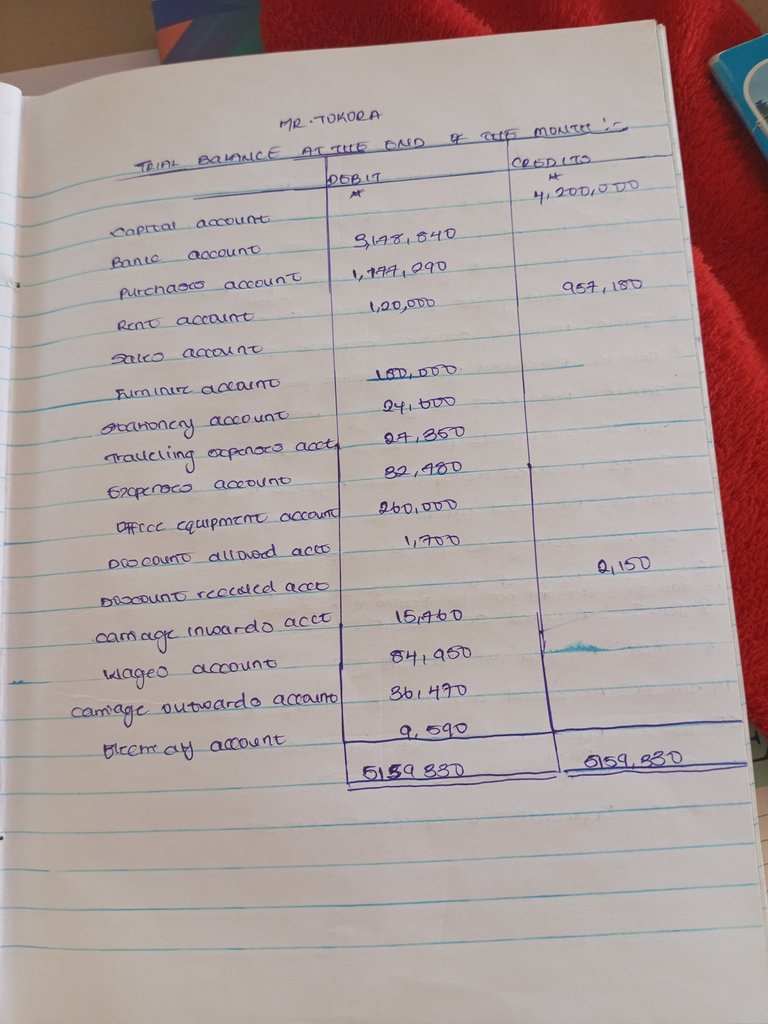 MR. TOKORA
TRIAL BALANCE AT THE END OF THE MONTH :-
DEBIT CREDITS
₦ ₦
Capital account 4,200,000
Bank account 3,178,840
Purchases account 1,177,290
Rent account 1,20,000
Sales account 957,180
Furniture account 180,000
Stationery account 24,600
Travelling expenses acct 27,350
Expenses account 32,480
Office equipment account 260,000
Discount allowed acct 1,700
Discount received acct 2,150
Carriage inwards acct 15,760
Wages account 84,950
Carriage outwards account 36,470
account 9,590
5159330 5159,330